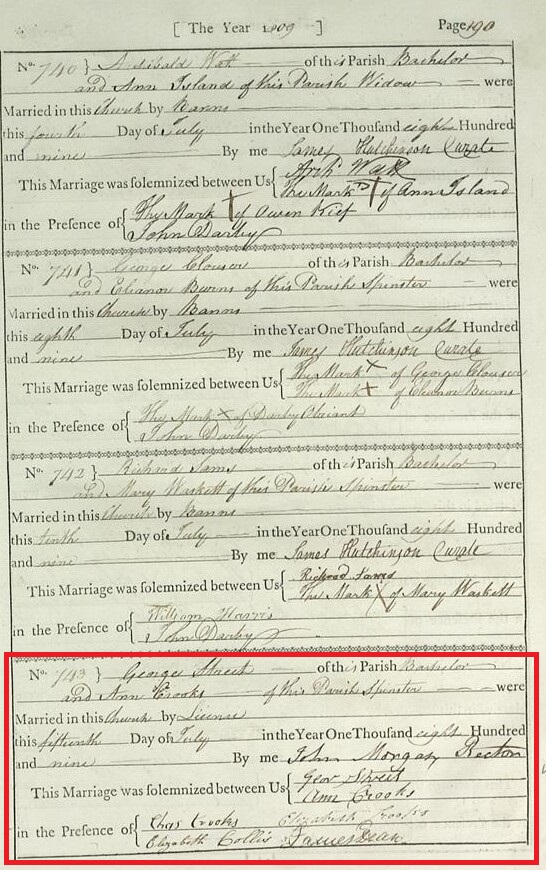 [ The Year 1809 ] Page 190
No. 740 } Archibald Watt of this Parish Bachelor
and Ann Island of this Parish Widow were
Married in this Church by Banns
this fourth Day of July in the Year One Thousand eight Hundred
and nine By me James Hutchinson Curate
This Marriage was solemnized between Us { Archd Watt
The Mark + of Ann Island
in the Presence of { The Mark + of Owen Kief
John Darby
No. 741 } George Clouser of this Parish Bachelor
and Eleanor Burns of this Parish Spinster were
Married in this Church by Banns
this eighth Day of July in the Year One Thousand eight Hundred
and nine By me James Hutchinson Curate
This Marriage was solemnized between Us { The Mark X of George Clouser
The Mark + of Eleanor Burns
in the Presence of { The Mark X of Darby Obriant
John Darby
No. 742 } Richard Sams of this Parish Bachelor
and Mary Waskett of this Parish Spinster were
Married in this Church by Banns
this tenth Day of July in the Year One Thousand eight Hundred
and nine By me James Hutchinson Curate
This Marriage was solemnized between Us { Richard Sams
The Mark X of Mary Waskett
in the Presence of { William Harris
John Darby
No. 743 } George Street of this Parish Bachelor
and Ann Crooks of this Parish Spinster were
Married in this Church by License
this fifteenth Day of July in the Year One Thousand eight Hundred
and nine By me John Morgan Rector
This Marriage was solemnized between Us { Geor Street
Ann Crooks
in the Presence of { Chas Crooks Elizabeth Crooks
Elizabeth Collis James Dean